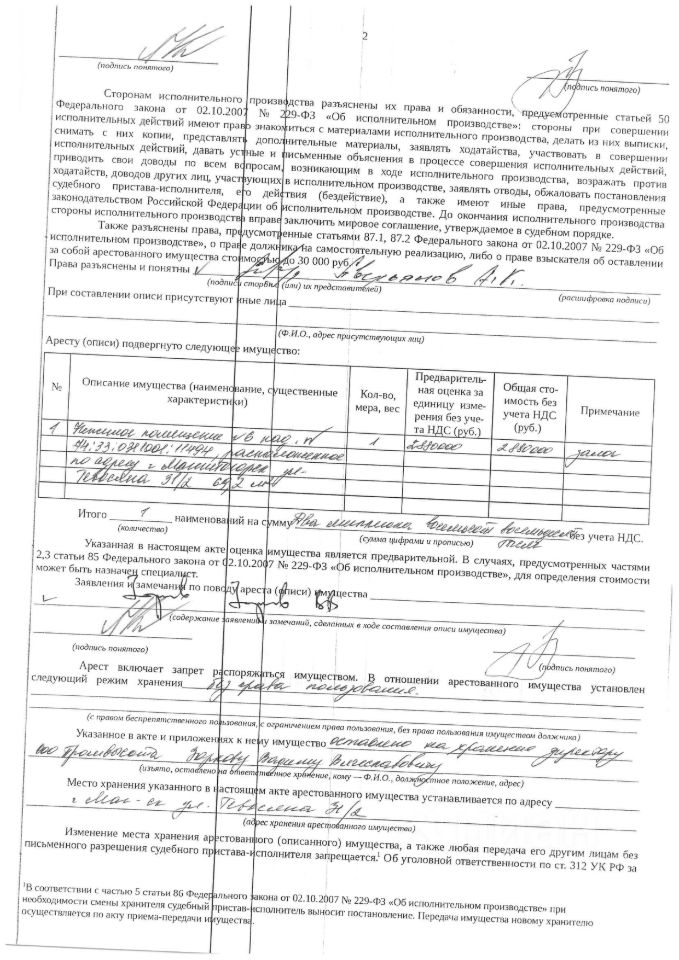 2
(подпись понятого)
(подпись понятого)
Сторонам исполнительного производства разъяснены их права и обязанности, предусмотренные статьей 50
Федерального закона от 02.10.2007 № 229-ФЗ «Об исполнительном производстве»: стороны при совершении
исполнительных действий имеют право знакомиться с материалами исполнительного производства, делать из них выписки,
снимать с них копии, представлять дополнительные материалы, заявлять ходатайства, участвовать в совершении
исполнительных действий, давать устные и письменные объяснения в процессе совершения исполнительных действий,
приводить свои доводы по всем вопросам, возникающим в ходе исполнительного производства, возражать против
ходатайств, доводов других лиц, участвующих в исполнительном производстве, заявлять отводы, обжаловать постановления
судебного пристава-исполнителя, его действия (бездействие), а также имеют иные права, предусмотренные
законодательством Российской Федерации об исполнительном производстве. До окончания исполнительного производства
стороны исполнительного производства вправе заключить мировое соглашение, утверждаемое в судебном порядке.
Также разъяснены права, предусмотренные статьями 87.1, 87.2 Федерального закона от 02.10.2007 № 229-ФЗ «Об
исполнительном производстве», о праве должника на самостоятельную реализацию, либо о праве взыскателя об оставлении
за собой арестованного имущества стоимостью до 30 000 руб.
Права разъяснены и понятны Аверьянов А.К.
(подписи сторон и (или) их представителей) (расшифровка подписи)
При составлении описи присутствуют иные лица
(Ф.И.О., адрес присутствующих лиц)
Аресту (описи) подвергнуто следующее имущество:
№ Описание имущества (наименование, существенные характеристики) Кол-во, мера, вес Предварительная оценка за единицу измерения без учета НДС (руб.) Общая стоимость без учета НДС (руб.) Примечание
1 Нежилое помещение №6 кад. № 1 2880000 2880000 залог
74:33:0311001:11494, расположенное
по адресу г. Магнитогорск ул.
Тевосяна 31/2 69,2 м²
Итого 1 наименований на сумму Два миллиона восемьсот восемьдесят тысяч без учета НДС.
(количество) (сумма цифрами и прописью)
Указанная в настоящем акте оценка имущества является предварительной. В случаях, предусмотренных частями
2,3 статьи 85 Федерального закона от 02.10.2007 № 229-ФЗ «Об исполнительном производстве», для определения стоимости
может быть назначен специалист.
Заявления и замечания по поводу ареста (описи) имущества
(содержание заявлений и замечаний, сделанных в ходе составления описи имущества)
(подпись понятого)
(подпись понятого)
Арест включает запрет распоряжаться имуществом. В отношении арестованного имущества установлен
следующий режим хранения без права пользования.
(с правом беспрепятственного пользования, с ограничением права пользования, без права пользования имуществом должника)
Указанное в акте и приложениях к нему имущество оставлено на хранение директору
ООО Промвысота Заркову Вадиму Вячеславовичу
(изъято, оставлено на ответственное хранение, кому — Ф.И.О., должностное положение, адрес)
Место хранения указанного в настоящем акте арестованного имущества устанавливается по адресу
г. Маг-ск ул. Тевосяна 31/2
(адрес хранения арестованного имущества)
Изменение места хранения арестованного (описанного) имущества, а также любая передача его другим лицам без
письменного разрешения судебного пристава-исполнителя запрещается.¹ Об уголовной ответственности по ст. 312 УК РФ за
¹В соответствии с частью 5 статьи 86 Федерального закона от 02.10.2007 № 229-ФЗ «Об исполнительном производстве» при
необходимости смены хранителя судебный пристав-исполнитель выносит постановление. Передача имущества новому хранителю
осуществляется по акту приема-передачи имущества.